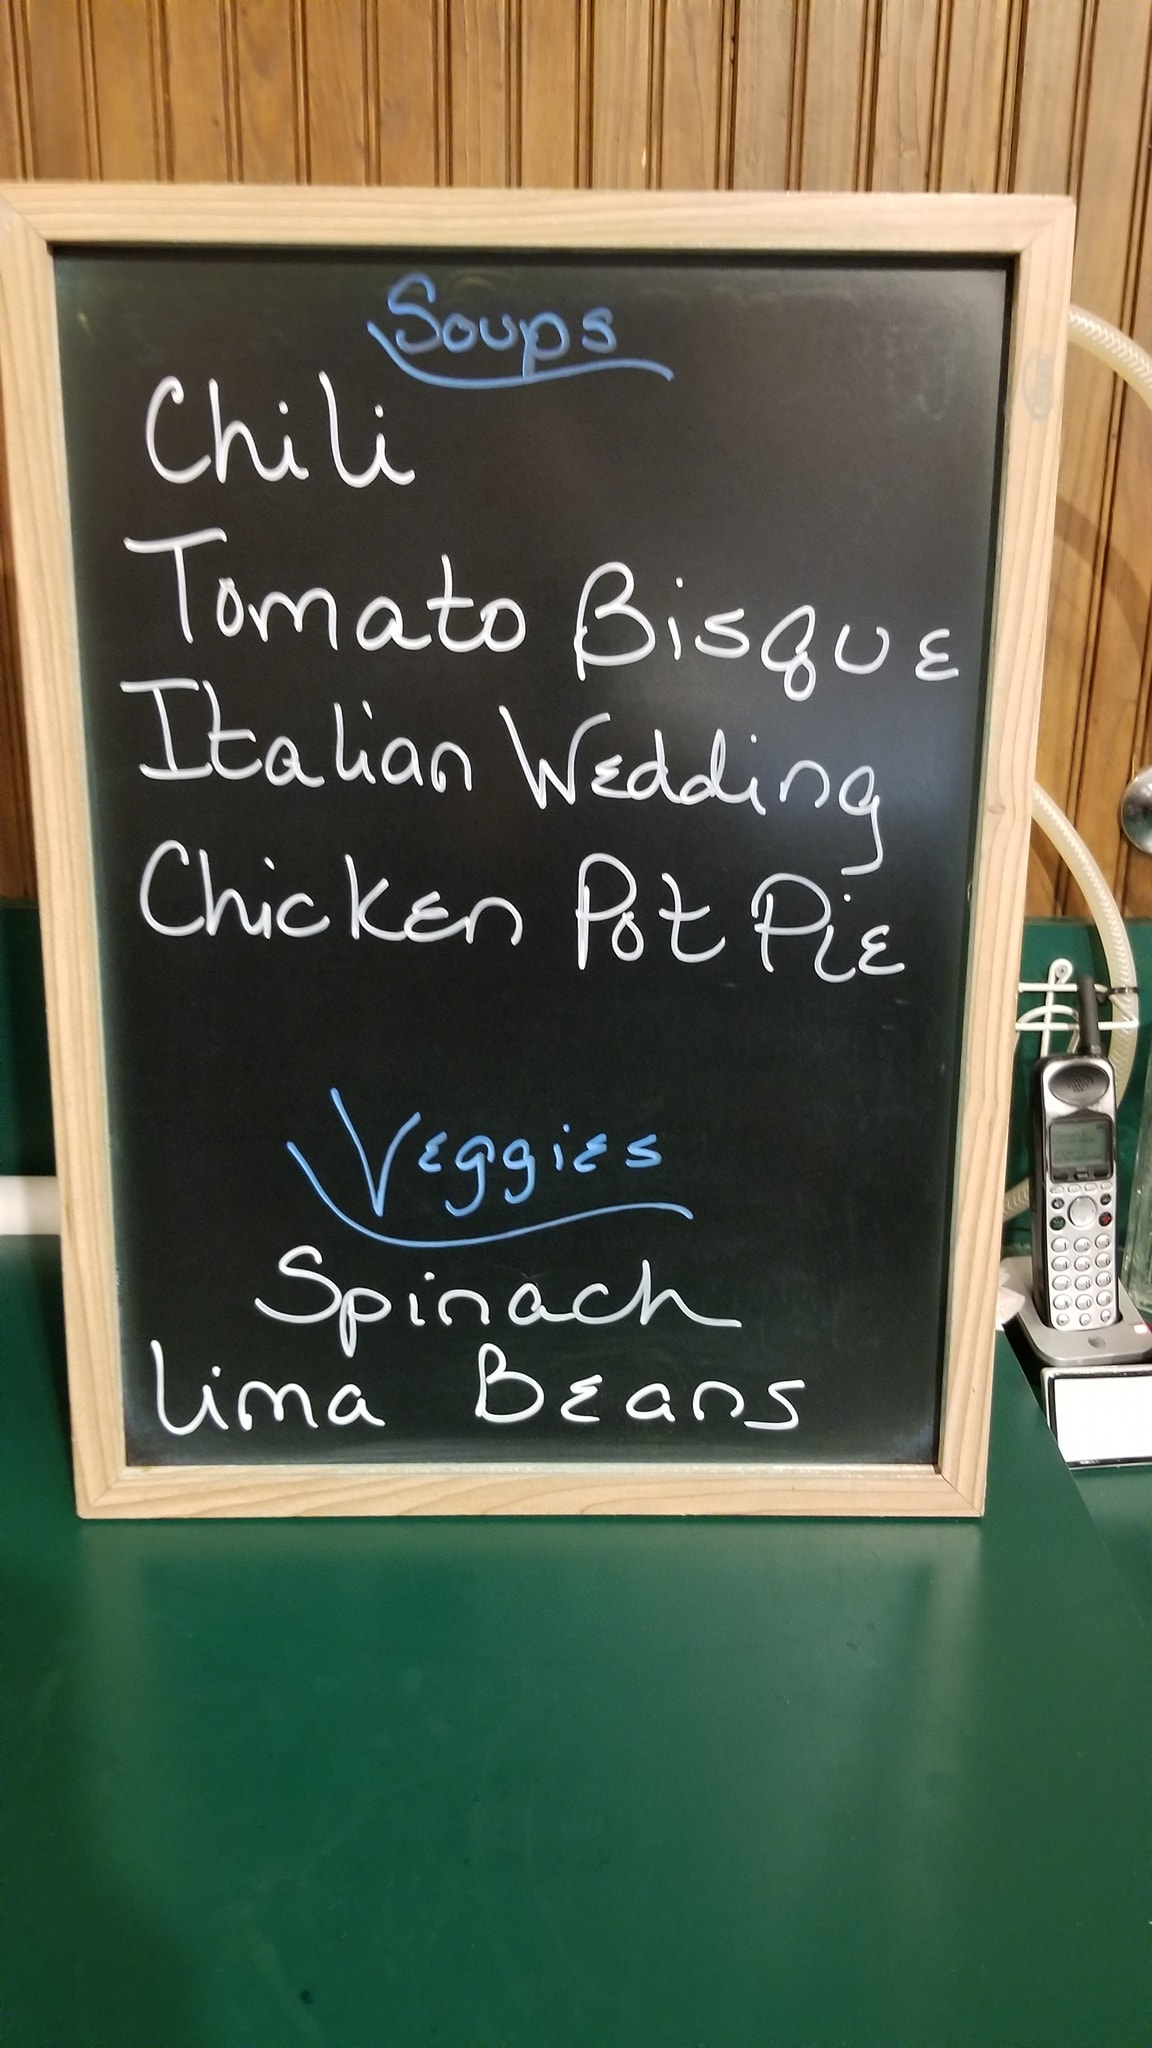 Soups
Chili
Tomato Bisque
Italian Wedding
Chicken Pot Pie
Veggies
Spinach
Lima Beans